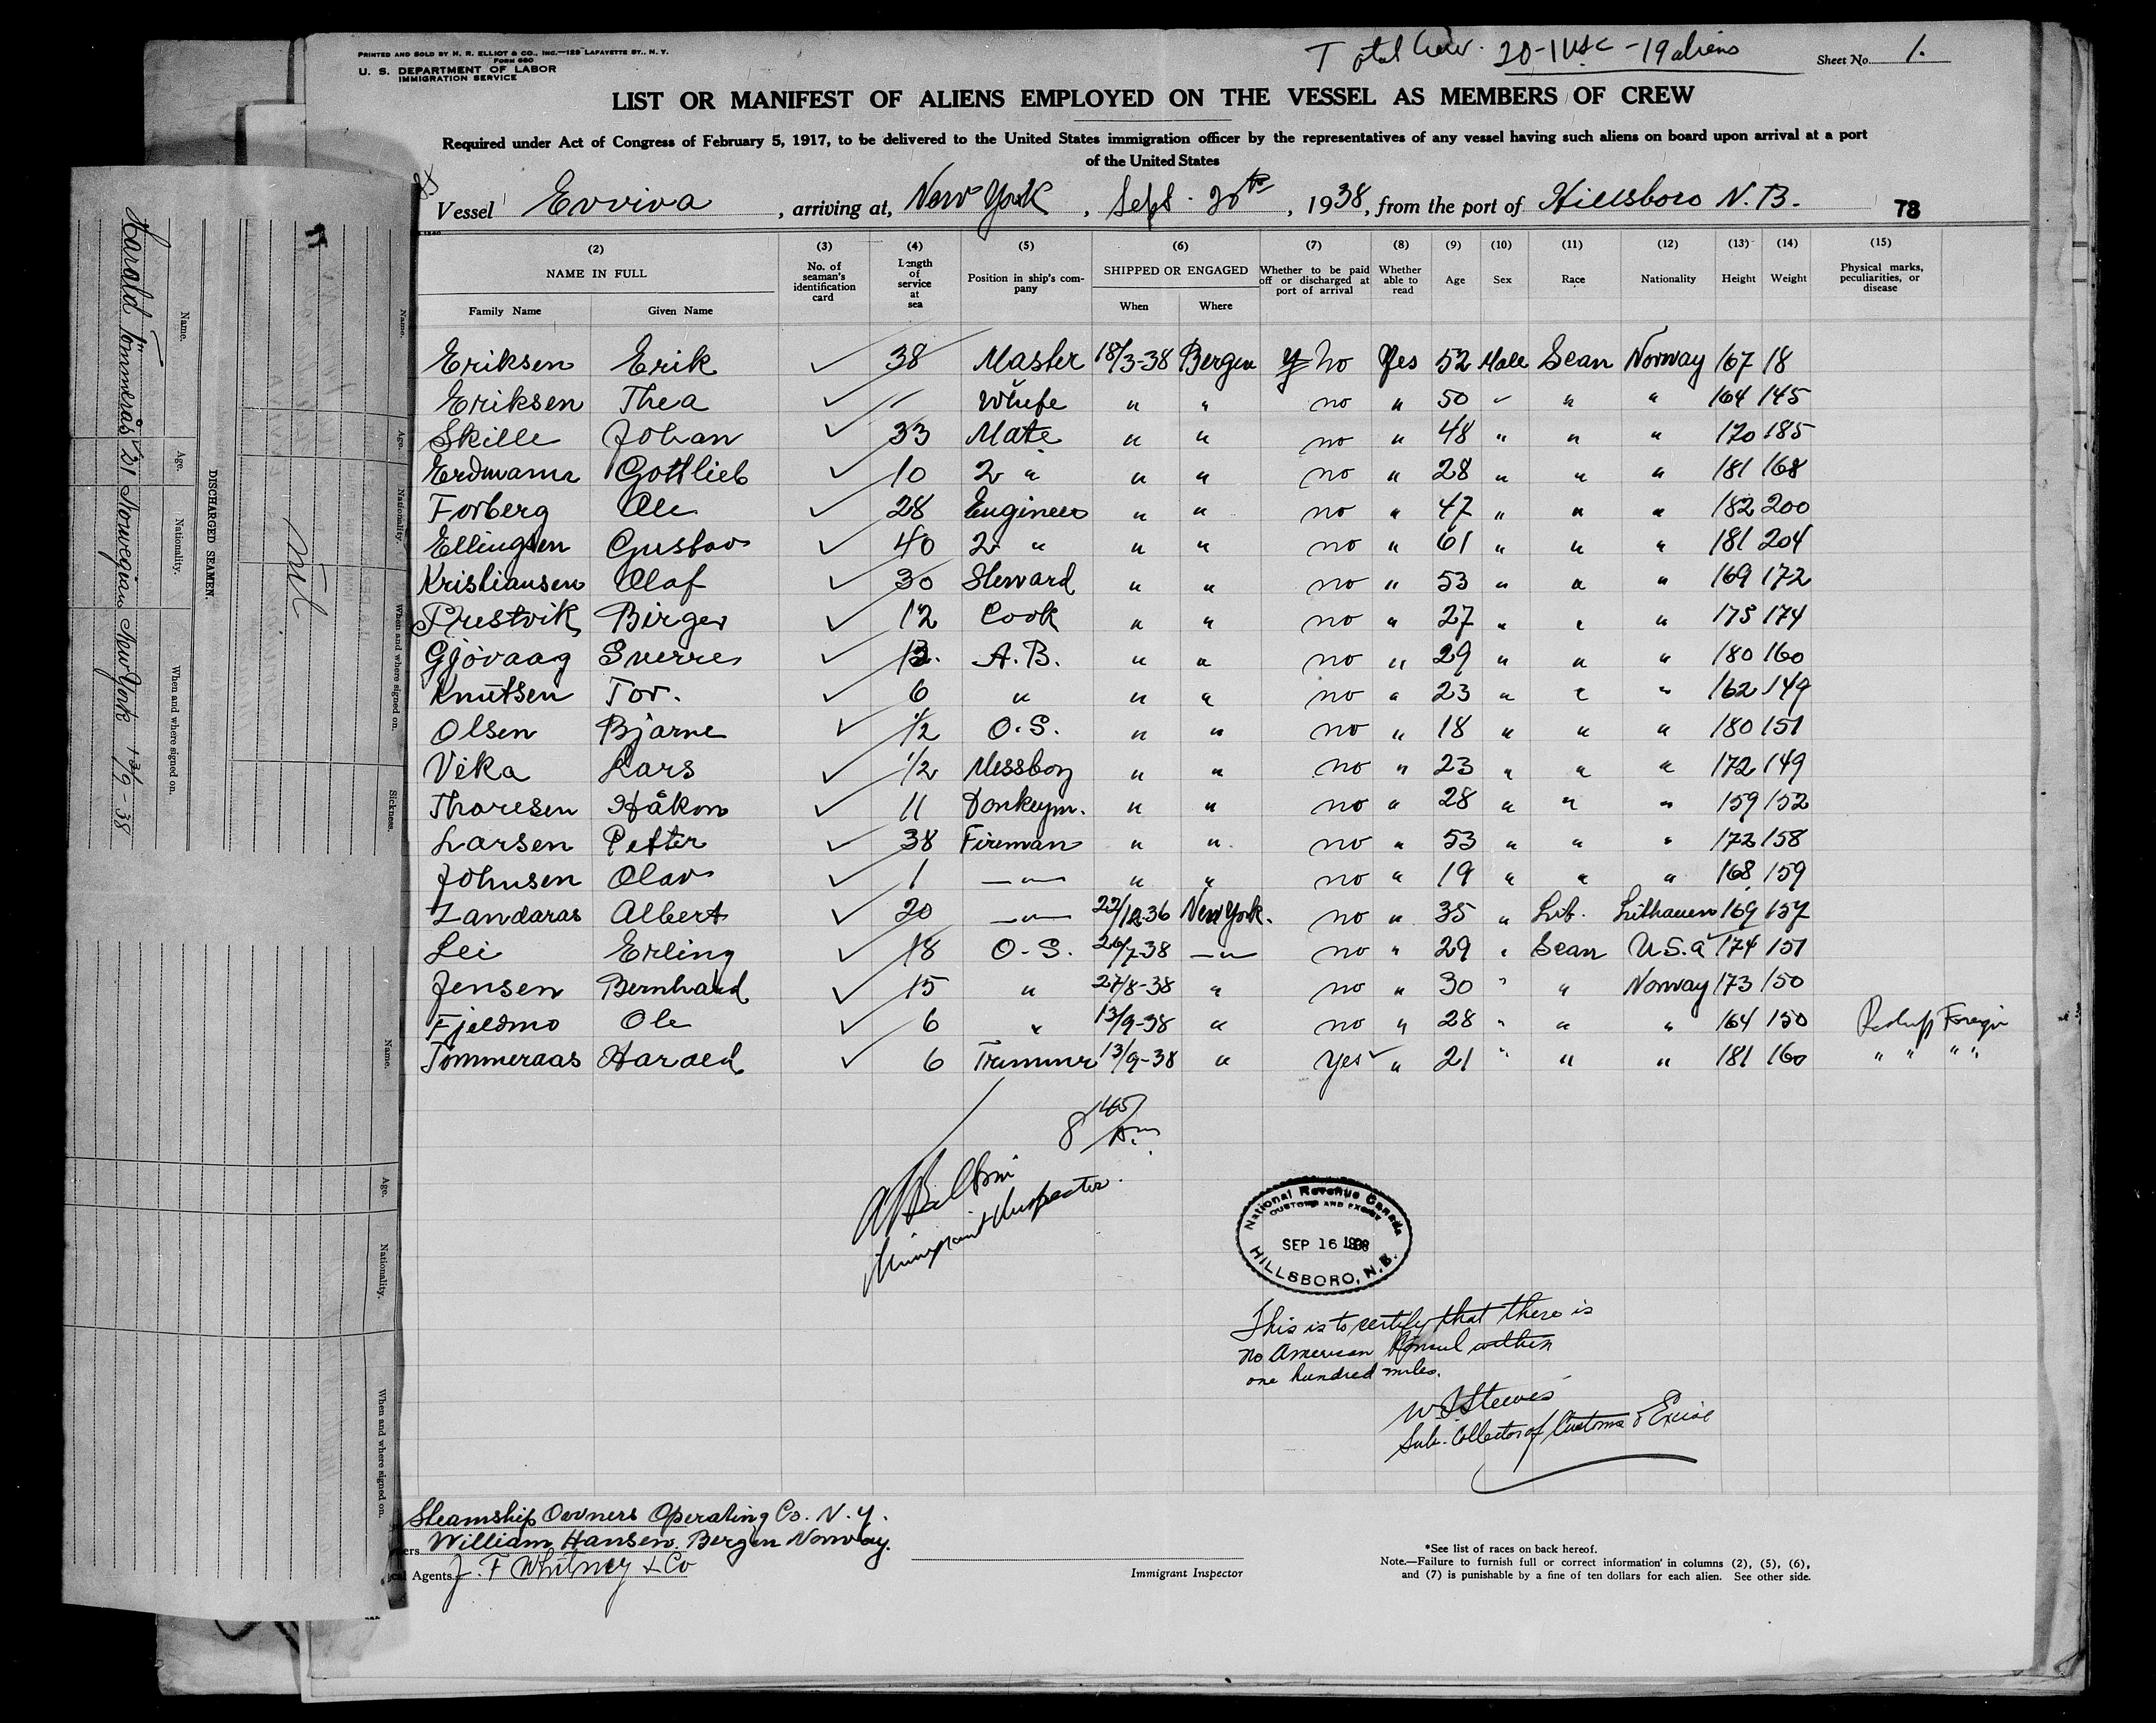 PRINTED AND SOLD BY H. R. ELLIOT & CO., INC.—129 LAFAYETTE ST., N. Y.
FORM 680
U. S. DEPARTMENT OF LABOR
IMMIGRATION SERVICE
Total Crew. 20-1 USC - 19 aliens
Sheet No. 1.
LIST OR MANIFEST OF ALIENS EMPLOYED ON THE VESSEL AS MEMBERS OF CREW
Required under Act of Congress of February 5, 1917, to be delivered to the United States immigration officer by the representatives of any vessel having such aliens on board upon arrival at a port
of the United States
Vessel Evviva, arriving at, New York, Sept. 20th, 1938, from the port of Hillsboro N.B. 78
(2) (3) (4) (5) (6) (7) (8) (9) (10) (11) (12) (13) (14) (15)
NAME IN FULL
Family Name Given Name
No. of seaman's identification card
Length of service at sea
Position in ship's company
SHIPPED OR ENGAGED
When Where
Whether to be paid off or discharged at port of arrival
Whether able to read
Age Sex Race Nationality Height Weight
Physical marks, peculiarities, or disease
Eriksen Erik ✓ 38 Master 18/3-38 Bergen no Yes 52 Male Scan Norway 167 18
Eriksen Thea ✓ — Whife " " no " 50 " " " 164 145
Skille Johan ✓ 33 Mate " " no " 48 " " " 170 185
Erdmann Gottlieb ✓ 10 2 " " " no " 28 " " " 181 168
Forberg Ole ✓ 28 Engineer " " no " 47 " " " 182 200
Ellingsen Gustav ✓ 40 2 " " " no " 61 " " " 181 204
Kristiansen Olaf ✓ 30 Steward " " no " 53 " " " 169 172
Prestvik Birger ✓ 12 Cook " " no " 27 " " " 175 174
Gjøvaag Sverre ✓ 13. A.B. " " no " 29 " " " 180 160
Knutsen Tor. ✓ 6 " " " no " 23 " " " 162 149
Olsen Bjarne ✓ 1/2 O.S. " " no " 18 " " " 180 151
Vika Lars ✓ 1/2 Messboy " " no " 23 " " " 172 149
Thoresen Håkon ✓ 11 Donkeym. " " no " 28 " " " 159 152
Larsen Petter ✓ 38 Fireman " " no " 53 " " " 172 158
Johnsen Olav ✓ 1 —"— " " no " 19 " " " 168 159
Zandaras Albert ✓ 20 —"— 22/12-36 New York. no " 35 " Lit. Lithauen 169 157
Lei Erling ✓ 18 O-S. 26/7-38 —"— no " 29 " Scan U.S.a 174 151
Jensen Bernhard ✓ 15 " 27/8-38 " no " 30 " " Norway 173 150
Fjeldmo Ole ✓ 6 " 13/9-38 " no " 28 " " " 164 150 Reshipp Foreign
Tømmeraas Harald ✓ 6 Trimmer 13/9-38 " Yes ✓ " 21 " " " 181 160 " " " "
8 45/am
Immigrant Inspector.
National Revenue Canada
CUSTOMS AND EXCISE
SEP 16 1938
HILLSBORO, N.B.
This is to certify that there is
no American Consul within
one hundred miles.
W S Steeves
Sub-Collector of Customs & Excise
Steamship Owners Operating Co. N.Y.
William Hansen. Bergen Norway.
Agents J. F. Whitney & Co
Immigrant Inspector
*See list of races on back hereof.
Note.—Failure to furnish full or correct information in columns (2), (5), (6),
and (7) is punishable by a fine of ten dollars for each alien. See other side.
DISCHARGED SEAMEN.
Name. Age. Nationality. When and where signed on.
Harald Tömmerås 21 Norwegian New York 13/9-38
Name. Age. Nationality. When and where signed on. Sickness.
Nil
Name. Age. Nationality. When and where signed on.